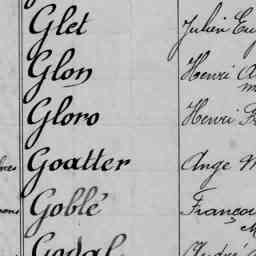 Glet Julien Eug
Glon Henri A
Gloro Henri F
Goatter Ange M
Goblé Françoi
Godal André